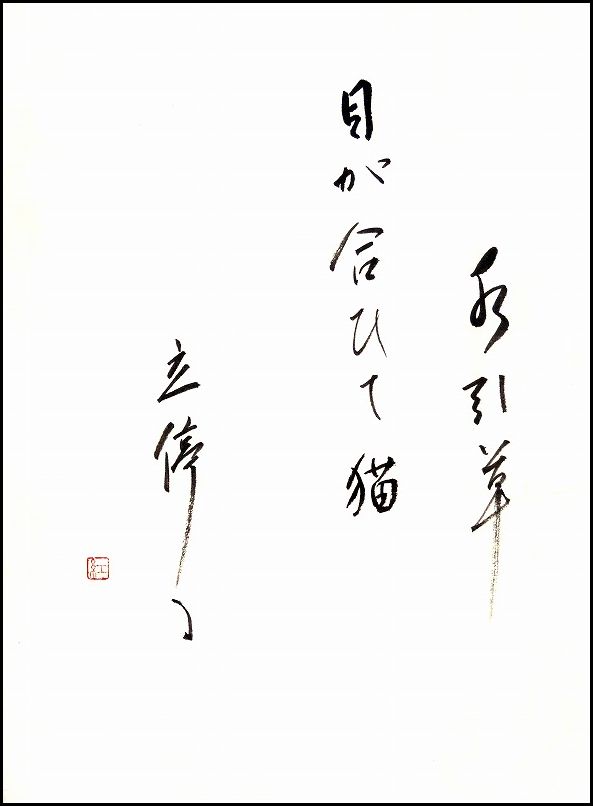 水引草
目が合ひて猫
立停る
紅